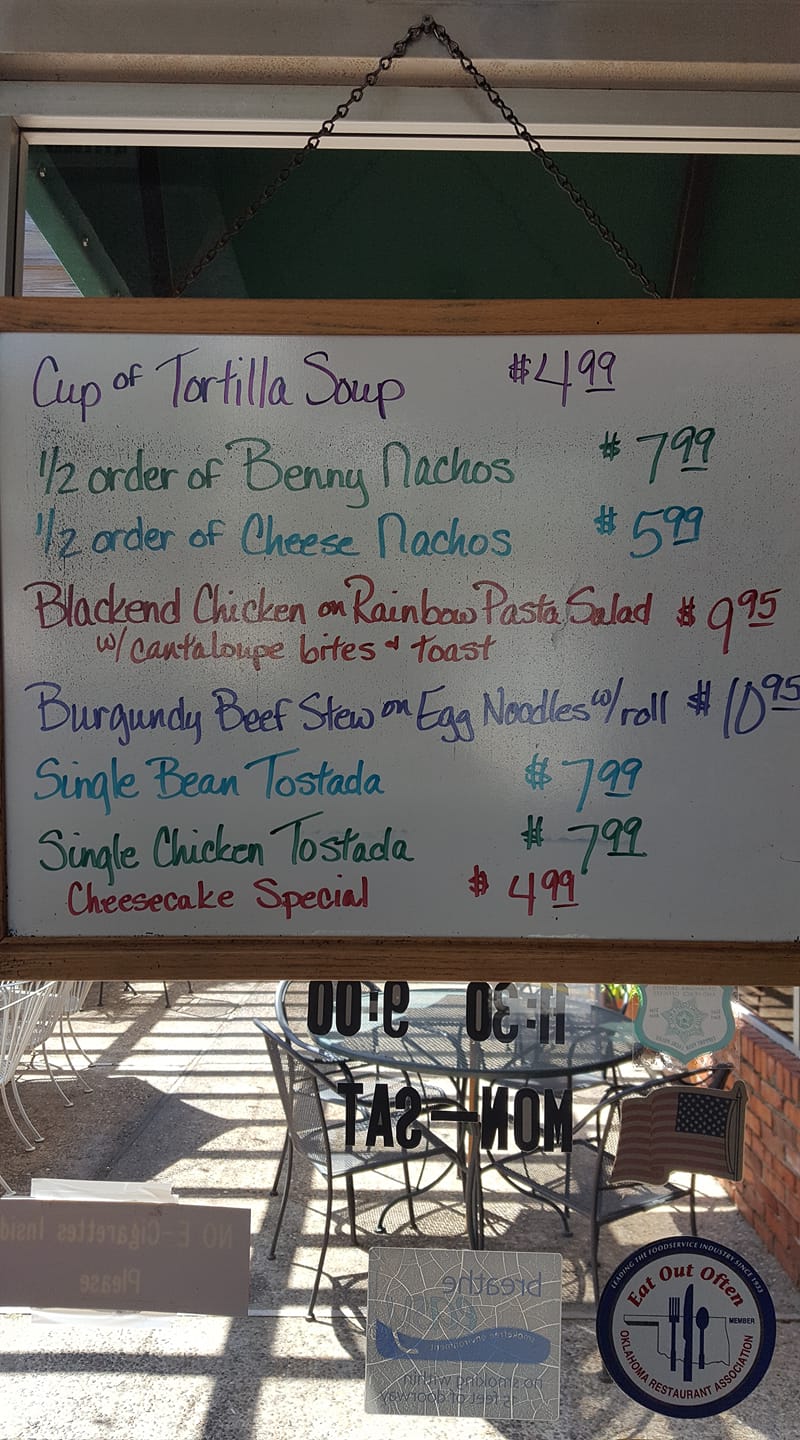 Cup of Tortilla Soup $4.99
1/2 order of Benny Nachos $7.99
1/2 order of Cheese Nachos $5.99
Blackend Chicken on Rainbow Pasta Salad $9.95
w/ cantaloupe bites & toast
Burgundy Beef Stew on Egg Noodles w/ roll $10.95
Single Bean Tostada $7.99
Single Chicken Tostada $7.99
Cheesecake Special $4.99
11:30 9:00
MON-SAT
NO E-Cigarettes Insid
Please
breathe
smokefree environment
no smoking within
feet of doorway
LEADING THE FOODSERVICE INDUSTRY SINCE 1933
Eat Out Often
MEMBER
OKLAHOMA RESTAURANT ASSOCIATION